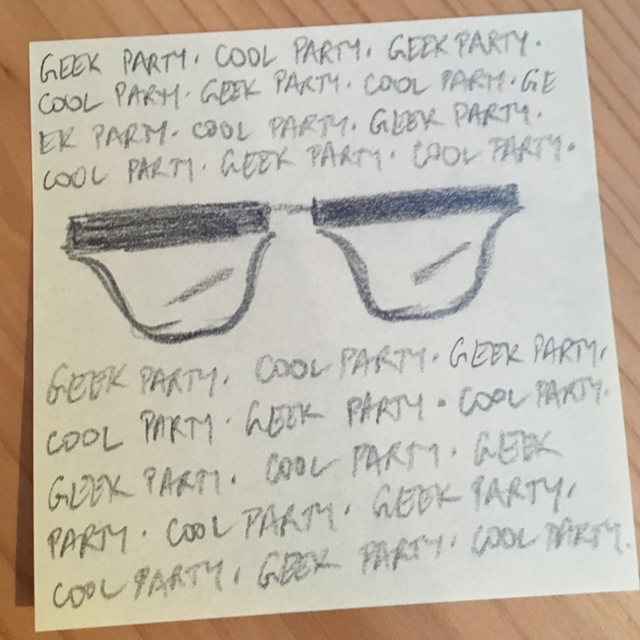 GEEK PARTY. COOL PARTY. GEEK PARTY.
COOL PARTY. GEEK PARTY. COOL PARTY. GE
EK PARTY. COOL PARTY. GEEK PARTY.
COOL PARTY. GEEK PARTY. COOL PARTY.
GEEK PARTY. COOL PARTY. GEEK PARTY.
COOL PARTY. GEEK PARTY. COOL PARTY.
GEEK PARTY. COOL PARTY. GEEK
PARTY. COOL PARTY. GEEK PARTY.
COOL PARTY. GEEK PARTY. COOL PARTY.